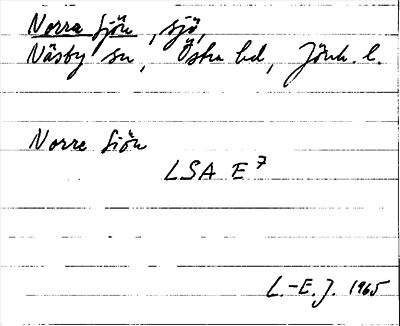 Norra Sjön, sjö,
Näsby sn, Östra hd, Jönk. l.
Norre Siön
LSA E 7
L.-E. J. 1965